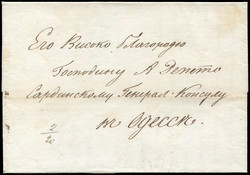 Его Высоко Благородю
Господину А Депето
Сардинскому Генерал-Консулу
в Одессе.
2/20